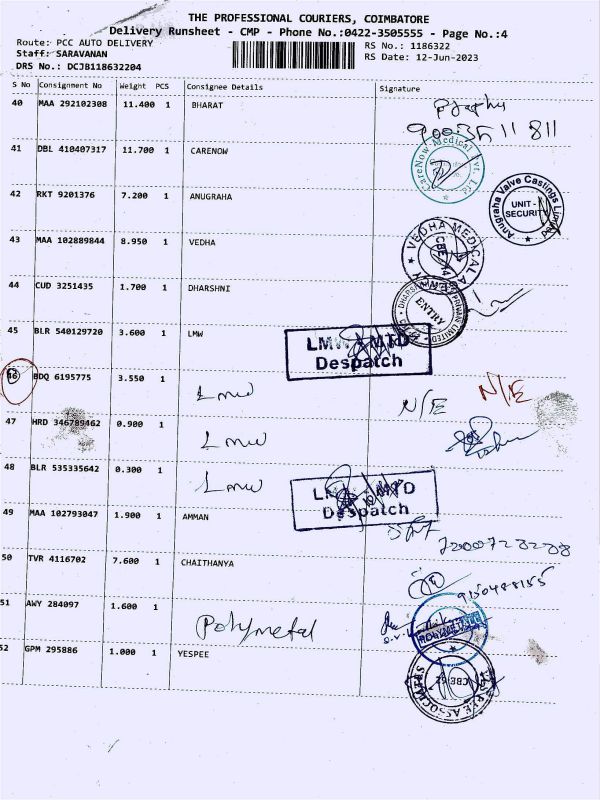 THE PROFESSIONAL COURIERS, COIMBATORE
Delivery Runsheet - CMP - Phone No.:0422-3505555 - Page No.:4
Route: PCC AUTO DELIVERY RS No.: 1186322
Staff: SARAVANAN RS Date: 12-Jun-2023
DRS No.: DCJB118632204
S No Consignment No Weight PCS Consignee Details Signature
40 MAA 292102308 11.400 1 BHARAT
41 DBL 410407317 11.700 1 CARENOW
CareNow Medical Pvt. Ltd
42 RKT 9201376 7.200 1 ANUGRAHA
Anugraha Valve Castings Limited
UNIT -
SECURITY
43 MAA 102889844 8.950 1 VEDHA
VEDHA MEDICAL
44 CUD 3251435 1.700 1 DHARSHNI
ENTRY
PRIVATE LIMITED
45 BLR 540129720 3.600 1 LMW
LMW - MTD
Despatch
46 BDQ 6195775 3.550 1 Lmw N/E N/E
47 HRD 346789462 0.900 1 Lmw
48 BLR 535335642 0.300 1 Lmw
MTD
Despatch
49 MAA 102793047 1.900 1 AMMAN
50 TVR 4116702 7.600 1 CHAITHANYA
9150448155
51 AWY 284097 1.600 1 Polymetal
52 GPM 295886 1.000 1 YESPEE
YESPEE ASSOCIATES